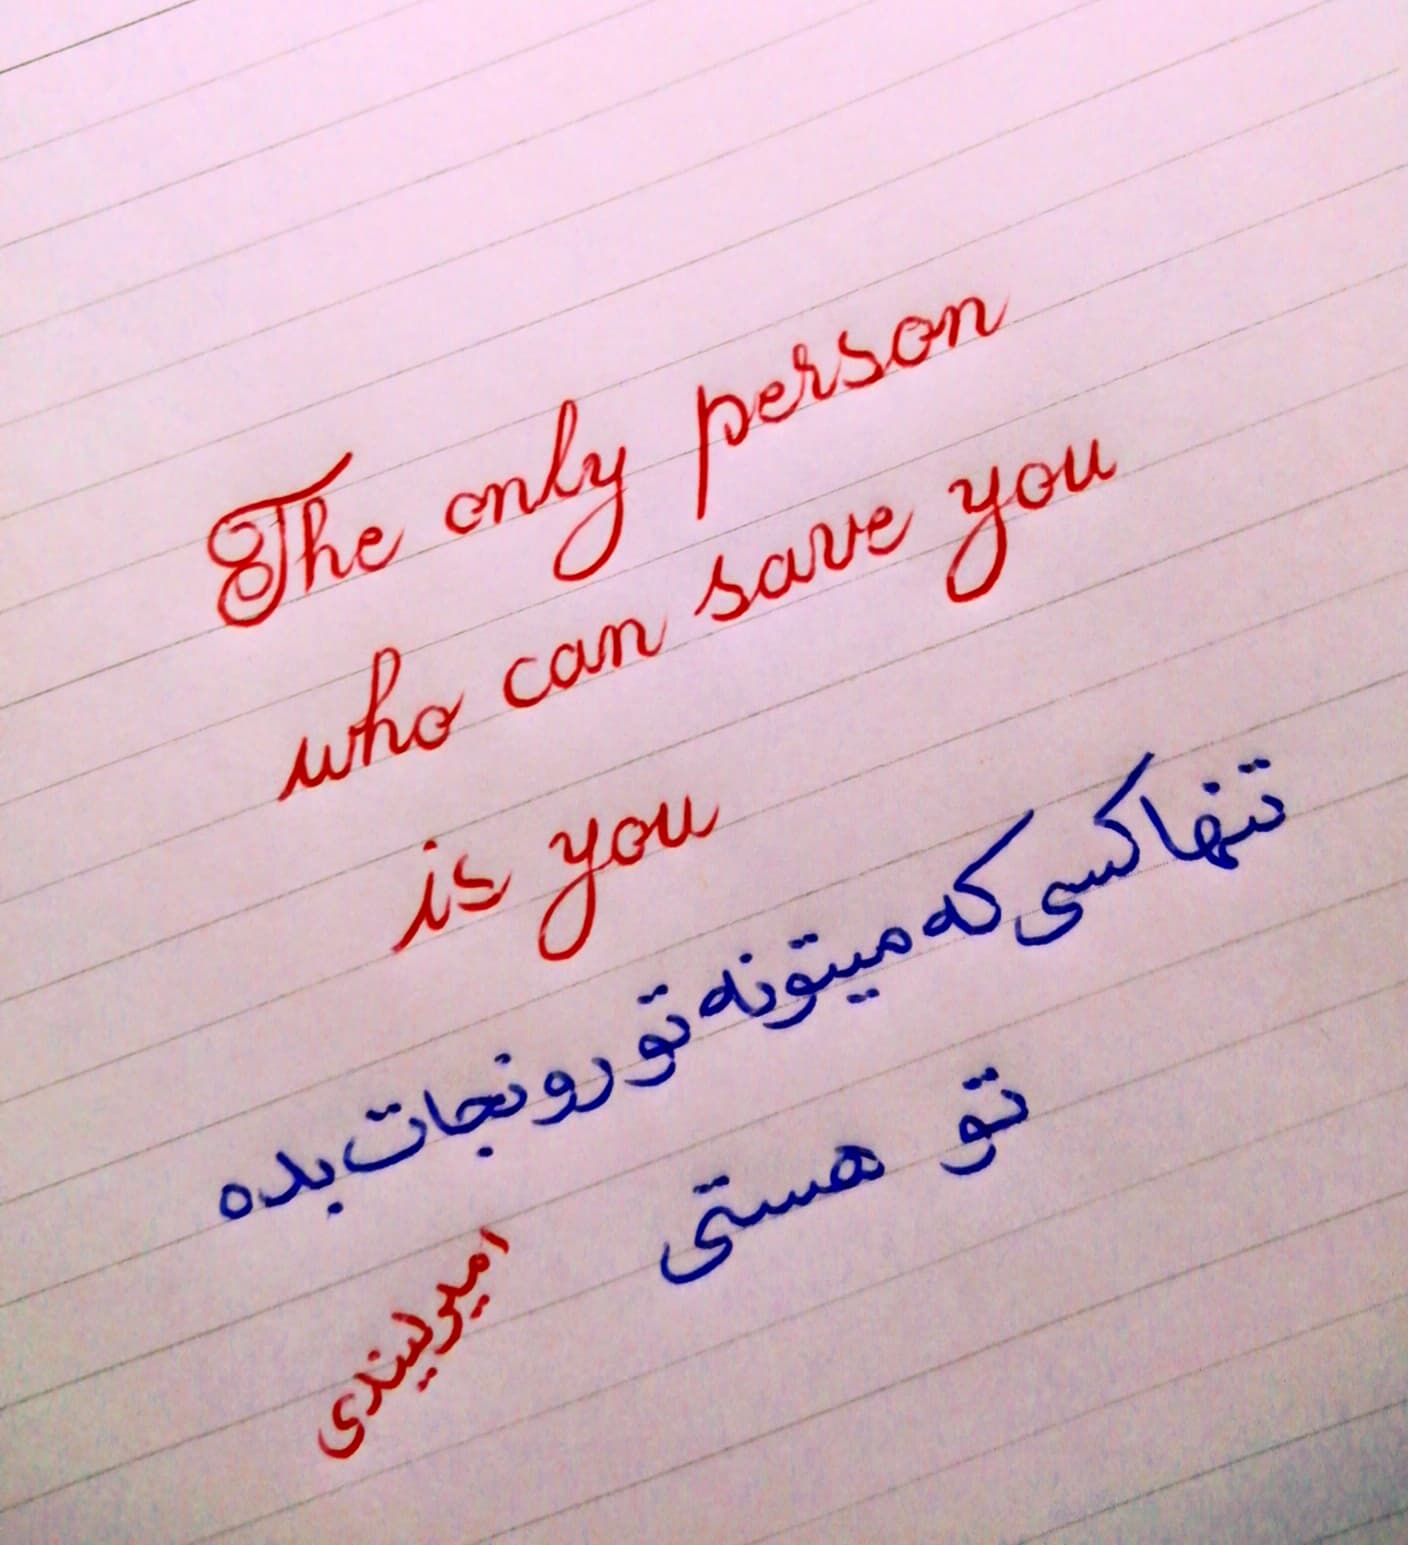 The only person
who can save you
is you
تنها کسی که میتونه تو رو نجات بده
تو هستی